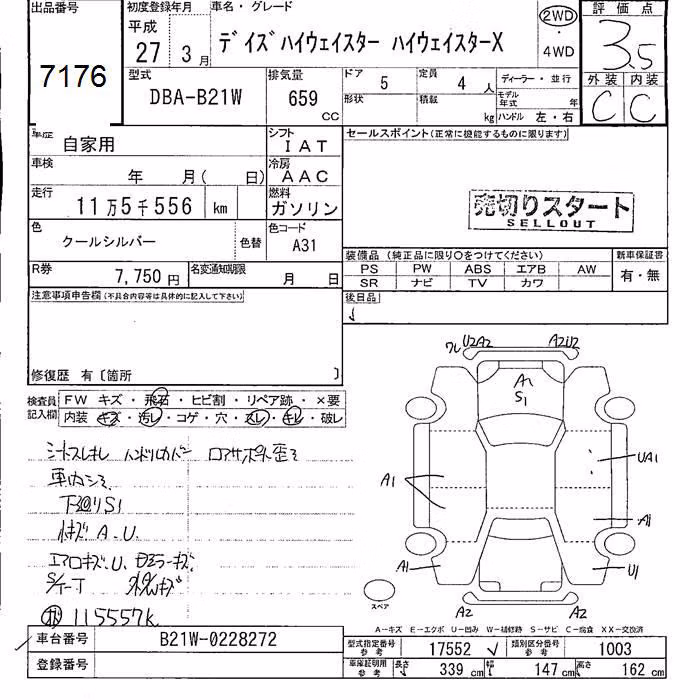 出品番号
7176
初度登録年月
平成
27 3月
車名・グレード
デイズハイウェイスター ハイウェイスターX
2WD
・
4WD
評価点
3.5
型式
DBA-B21W
排気量
659
CC
ドア 5
定員 4 人
形状
積載
kg
ディーラー・並行
モデル年式 年
ハンドル 左・右
外装 内装
C C
車歴 自家用
シフト
IAT
車検 年 月( 日)
冷房
AAC
走行 11万5千556 km
燃料
ガソリン
色 クールシルバー 色替
色コード
A31
R券 7,750円
名変通知期限 月 日
セールスポイント(正常に機能するものに限ります)
売切りスタート
SELLOUT
装備品(純正品に限り○をつけてください)
PS PW ABS エアB AW
SR ナビ TV カワ
新車保証書
有・無
後日品
注意事項申告欄(不具合内容等は具体的に記入して下さい)
修復歴 有〔箇所 〕
検査員記入欄
FW キズ・飛石・ヒビ割・リペア跡・×要
内装 キズ・汚レ・コゲ・穴・スレ・キレ・破レ
シートスレキレ ハンドルカバー
車内シミ
下回りS1
小キズ A.U.
エアロキズ.U.
115557K
ワレ U2A2 A2U2
A1
S1
UA1
A1
A1
A1 U1
A2 A2
スペア
A-キズ E-エクボ U-凹み W-補修跡 S-サビ C-腐食 XX-交換済
車台番号 B21W-0228272
登録番号
型式指定番号参考 17552
類別区分番号参考 1003
車庫証明用参考 長さ 339 cm 幅 147 cm 高さ 162 cm